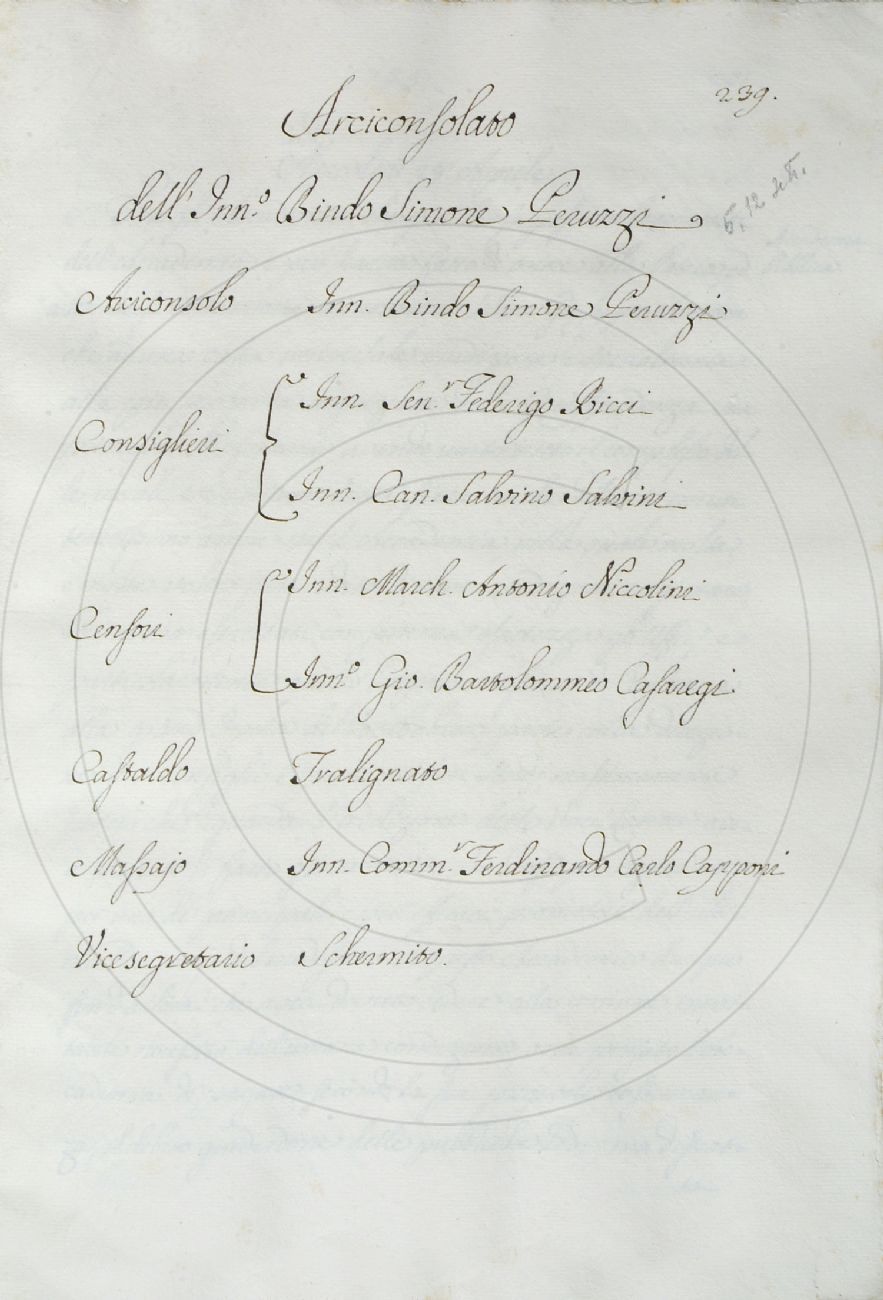 239.
Arciconsolato
dell' Inn.o Bindo Simone Peruzzi
Arciconsolo Inn. Bindo Simone Peruzzi
Inn. Sen.r Federigo Ricci
Consiglieri
Inn. Can. Salvino Salvini
Inn. March. Antonio Niccolini
Censori
Inn.o Gio. Bartolommeo Casaregi
Castaldo Tralignato
Massajo Inn. Comm.r Ferdinando Carlo Capponi
Vicesegretario Schermito.